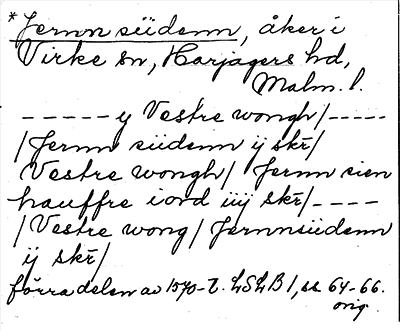 *Jernn siidenn, åker i
Virke sn, Harjagers hd,
Malm. l.
-----y Vestre wongh/-----
/Jernn siidenn ij skr̄/
Vestre wongh/ Jernn sien
hauffre iord iiij skr̄/----
/Vestre wong/ Jernnsiidenn
ij skr̄/
förra delen av 1570-t. LSLB 1, ss 64-66.
orig.